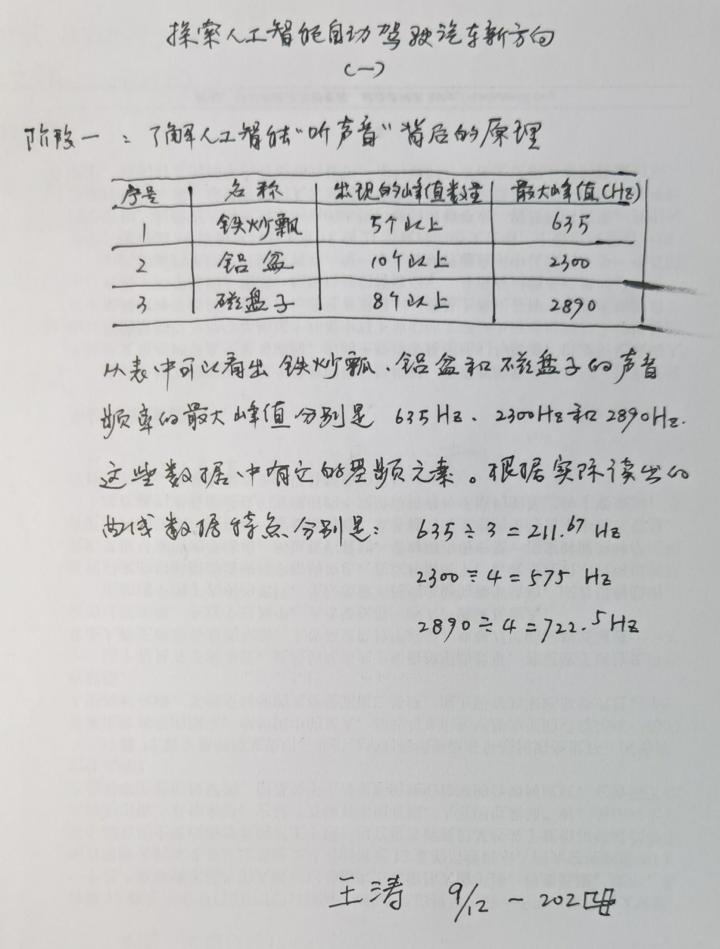 探索人工智能自动驾驶汽车新方向
(一)
阶段一：了解人工智能“听声音”背后的原理
序号 名称 出现的峰值数量 最大峰值(Hz)
1 铁炒瓢 5个以上 635
2 铝盆 10个以上 2300
3 磁盘子 8个以上 2890
从表中可以看出铁炒瓢、铝盆和磁盘子的声音
频率的最大峰值分别是 635Hz、2300Hz和2890Hz.
这些数据中有它的基频元素。根据实际读出的
曲线数据特点分别是： 635÷3=211.67 Hz
2300÷4=575 Hz
2890÷4=722.5Hz
王涛 9/12 ~ 202